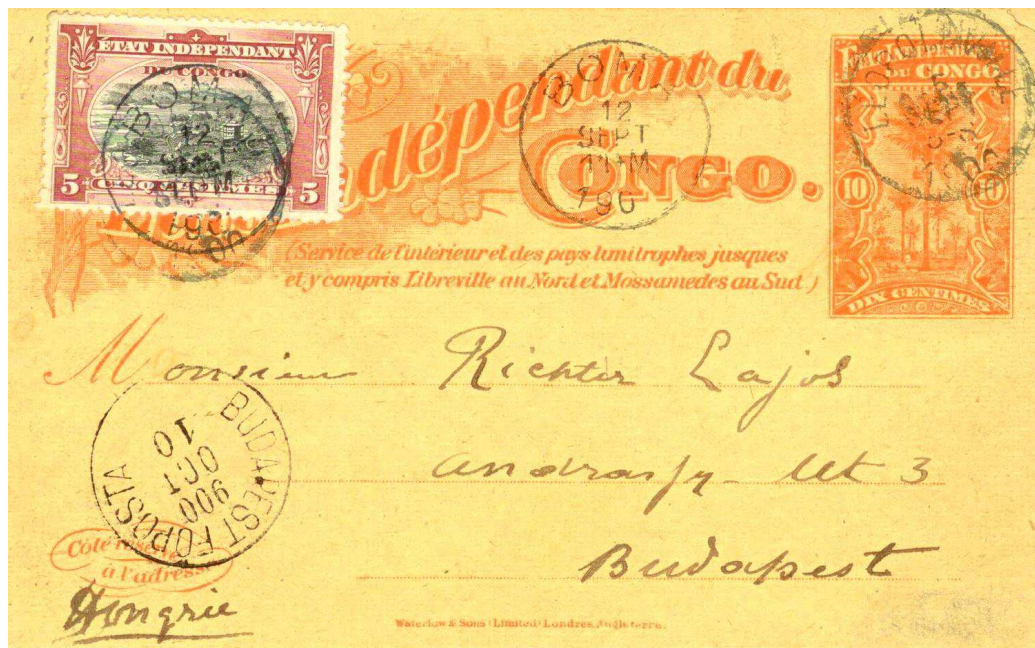 ÉTAT INDÉPENDANT
DU CONGO
5 CINQ CENTIMES 5
BOMA
12
SEPT
190
BOM
12
SEPT
1 PM
190
ÉTAT INDÉPENDANT DU CONGO
10 10
DIX CENTIMES
Indépendant du
CONGO.
(Service de l'intérieur et des pays limitrophes jusques
et y compris Libreville au Nord et Mossamedes au Sud)
Monsieur Richter Lajos
Andrassy Ut 3
Budapest
BUDAPEST FŐPOSTA
900
OCT
10
Côté réservé
à l'adresse
Hongrie
Waterlow & Sons Limited, Londres, Angleterre.